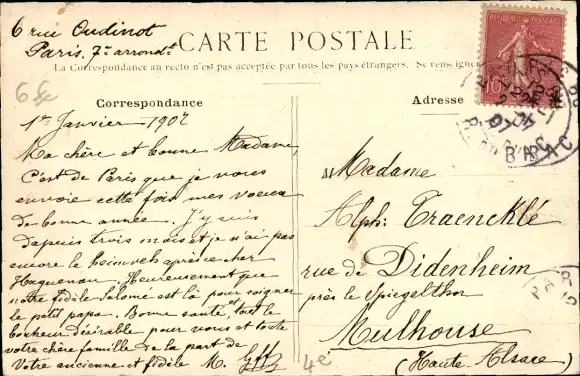 6 rue Oudinot
Paris. 7e arrondt
CARTE POSTALE
La Correspondance au recto n'est pas acceptée par tous les pays étrangers. Se rens
REPUBLIQUE FRANÇAISE
10
Correspondance
Adresse
1er Janvier 1907
Ma chère et bonne Madame,
C'est de Paris que je vous
envoie cette fois mes voeux
de bonne année. J'y suis
depuis trois mois et je n'ai pas
encore le heimweh après cher
Haguenau. Heureusement que
notre fidèle Salome est là pour soigner
le petit papa. Bonne santé et tout le
bonheur désirable pour vous et toute
votre chère famille de la part de
Votre ancienne et fidèle M.
Madame
Alph: Traencklé
rue de Didenheim
près le Spiegelthor
Mulhouse
(Haute Alsace)
R. DU BAC
PAR
4e